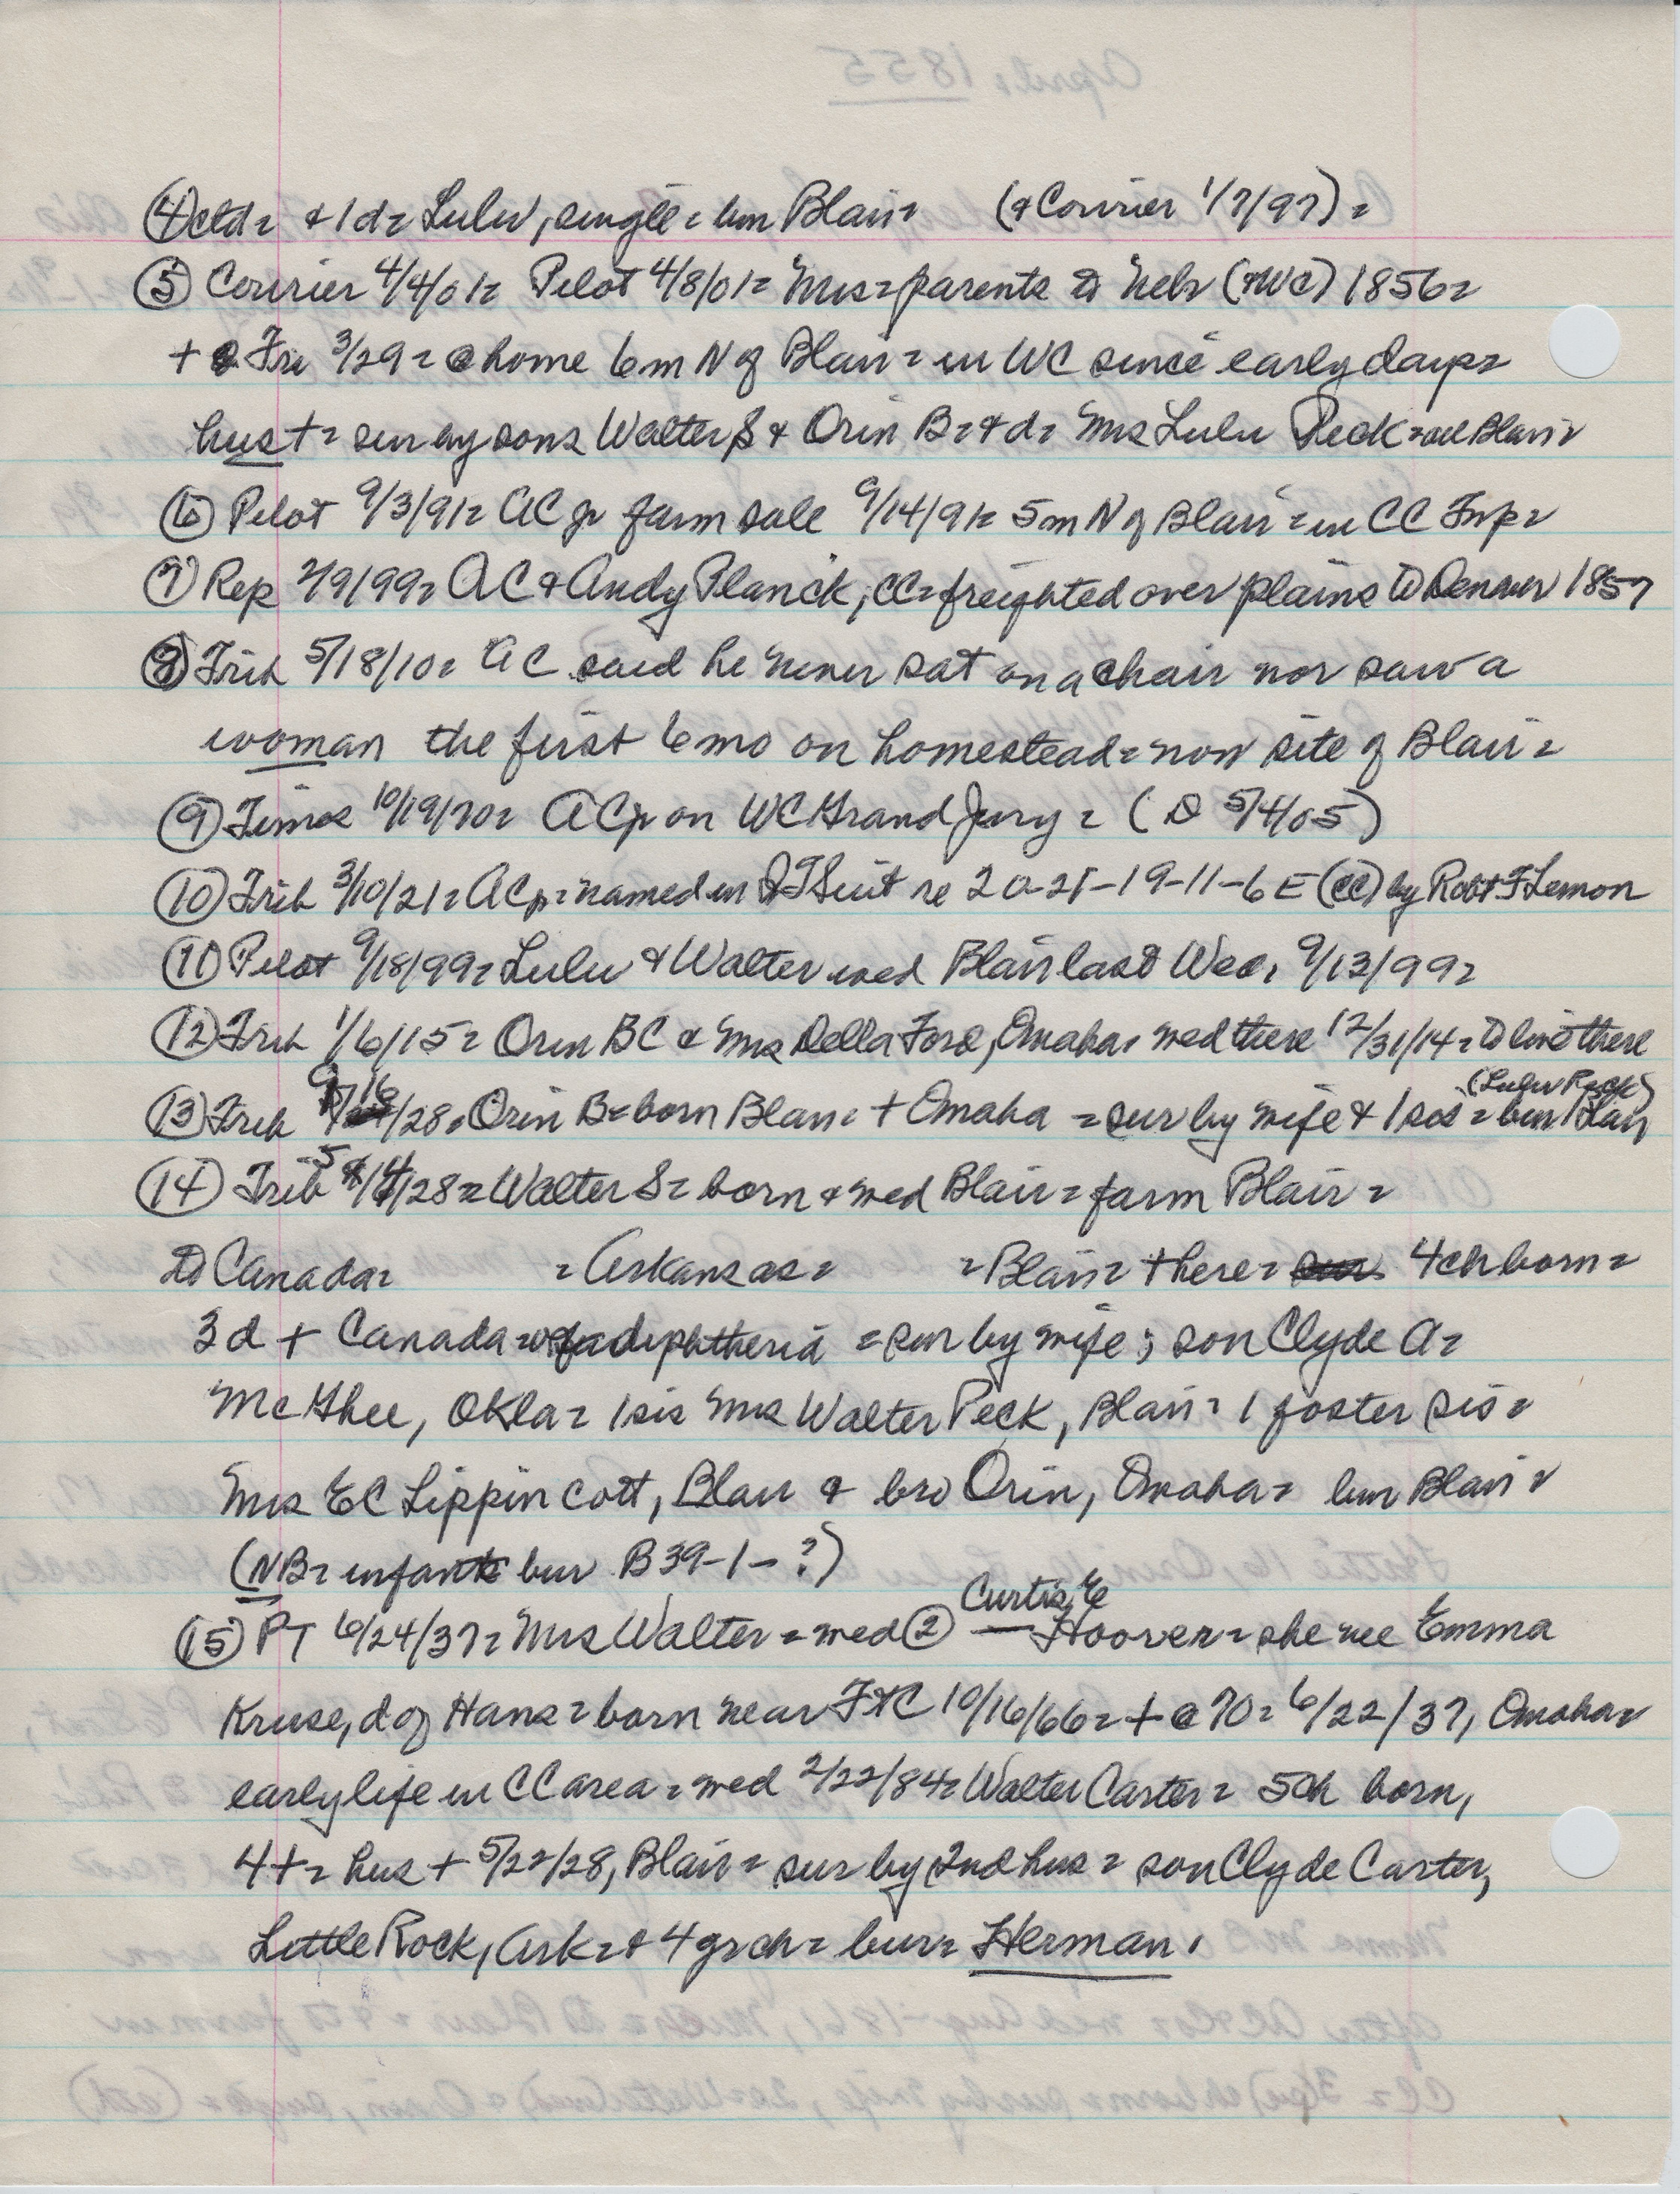 ④ctd= + 1 d= Lulu, single = bur Blair= (& Courier 1/7/97) =
⑤ Courier 4/4/01= Pilot 4/8/01= Mrs=parents to Neb (&WC) 1856=
+ Fri 3/29= @ home 6m N of Blair = in WC since early days=
hus += sur by sons Walter S & Orin B= & d= Mrs Lulu Peck=all Blair=
⑥ Pilot 9/3/91= AC jr farm sale 9/14/91= 5m N of Blair = in CC Twp=
⑦ Rep 2/9/99= AC & Andy Planck, CC=freighted over plains to Denver 1857
⑧ Trib 5/18/10= AC said he never sat on a chair nor saw a
woman the first 6mo on homestead=now site of Blair=
⑨ Times 10/19/70= AC jr on WC Grand Jury = (D 5/4/05)
⑩ Trib 3/10/21= AC jr=named in QT Suit re 20-21-19-11-6E (CC) by Robt F Lemon
⑪ Pilot 9/18/99= Lulu & Walter wed Blair last Wed, 9/13/99=
⑫ Trib 1/6/15= Orin BC & Mrs Della Ford, Omaha, wed there 12/31/14= to live there
(Lulu Peck)
⑬ Trib 9/16/28= Orin B=born Blair= + Omaha = sur by wife & 1 sis = bur Blair
⑭ Trib 5/14/28= Walter S= born & wed Blair= farm Blair=
to Canada= =Arkansas= =Blair= + here= 4ch born=
3 d + Canada= diphtheria =sur by wife; son Clyde A=
McGhee, Okla= 1 sis Mrs Walter Peck, Blair= 1 foster sis=
Mrs EC Lippincott, Blair & bro Orin, Omaha= bur Blair=
(NB= infant bur B39-1-?)
Curtis E
⑮ PT 6/24/37= Mrs Walter = wed ② — Hoover= she nee Emma
Kruse, d of Hans= born near FtC 10/16/66= + @ 70= 6/22/37, Omaha=
early life in CC area= wed 2/22/84= Walter Carter= 5ch born,
4+= hus + 5/22/28, Blair= sur by 2nd hus= son Clyde Carter,
Little Rock, Ark= & 4 grch= bur= Herman.